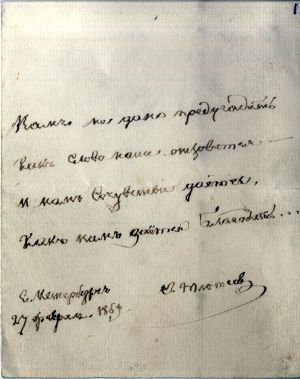 Намъ не дано предугадать
Какъ слово наше отзовется —
И намъ Сочувствіе дается,
Какъ намъ дается Благодать...
С. Петербургъ
27 феврал. 1869
Ѳ. Тютчевъ